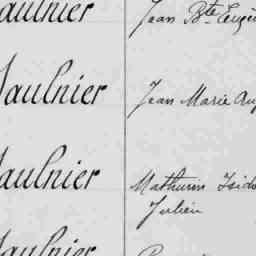 aulnier Jean Bte Eugè
aulnier Jean Marie Aug
aulnier Mathurin Isido
Julien
aulnier